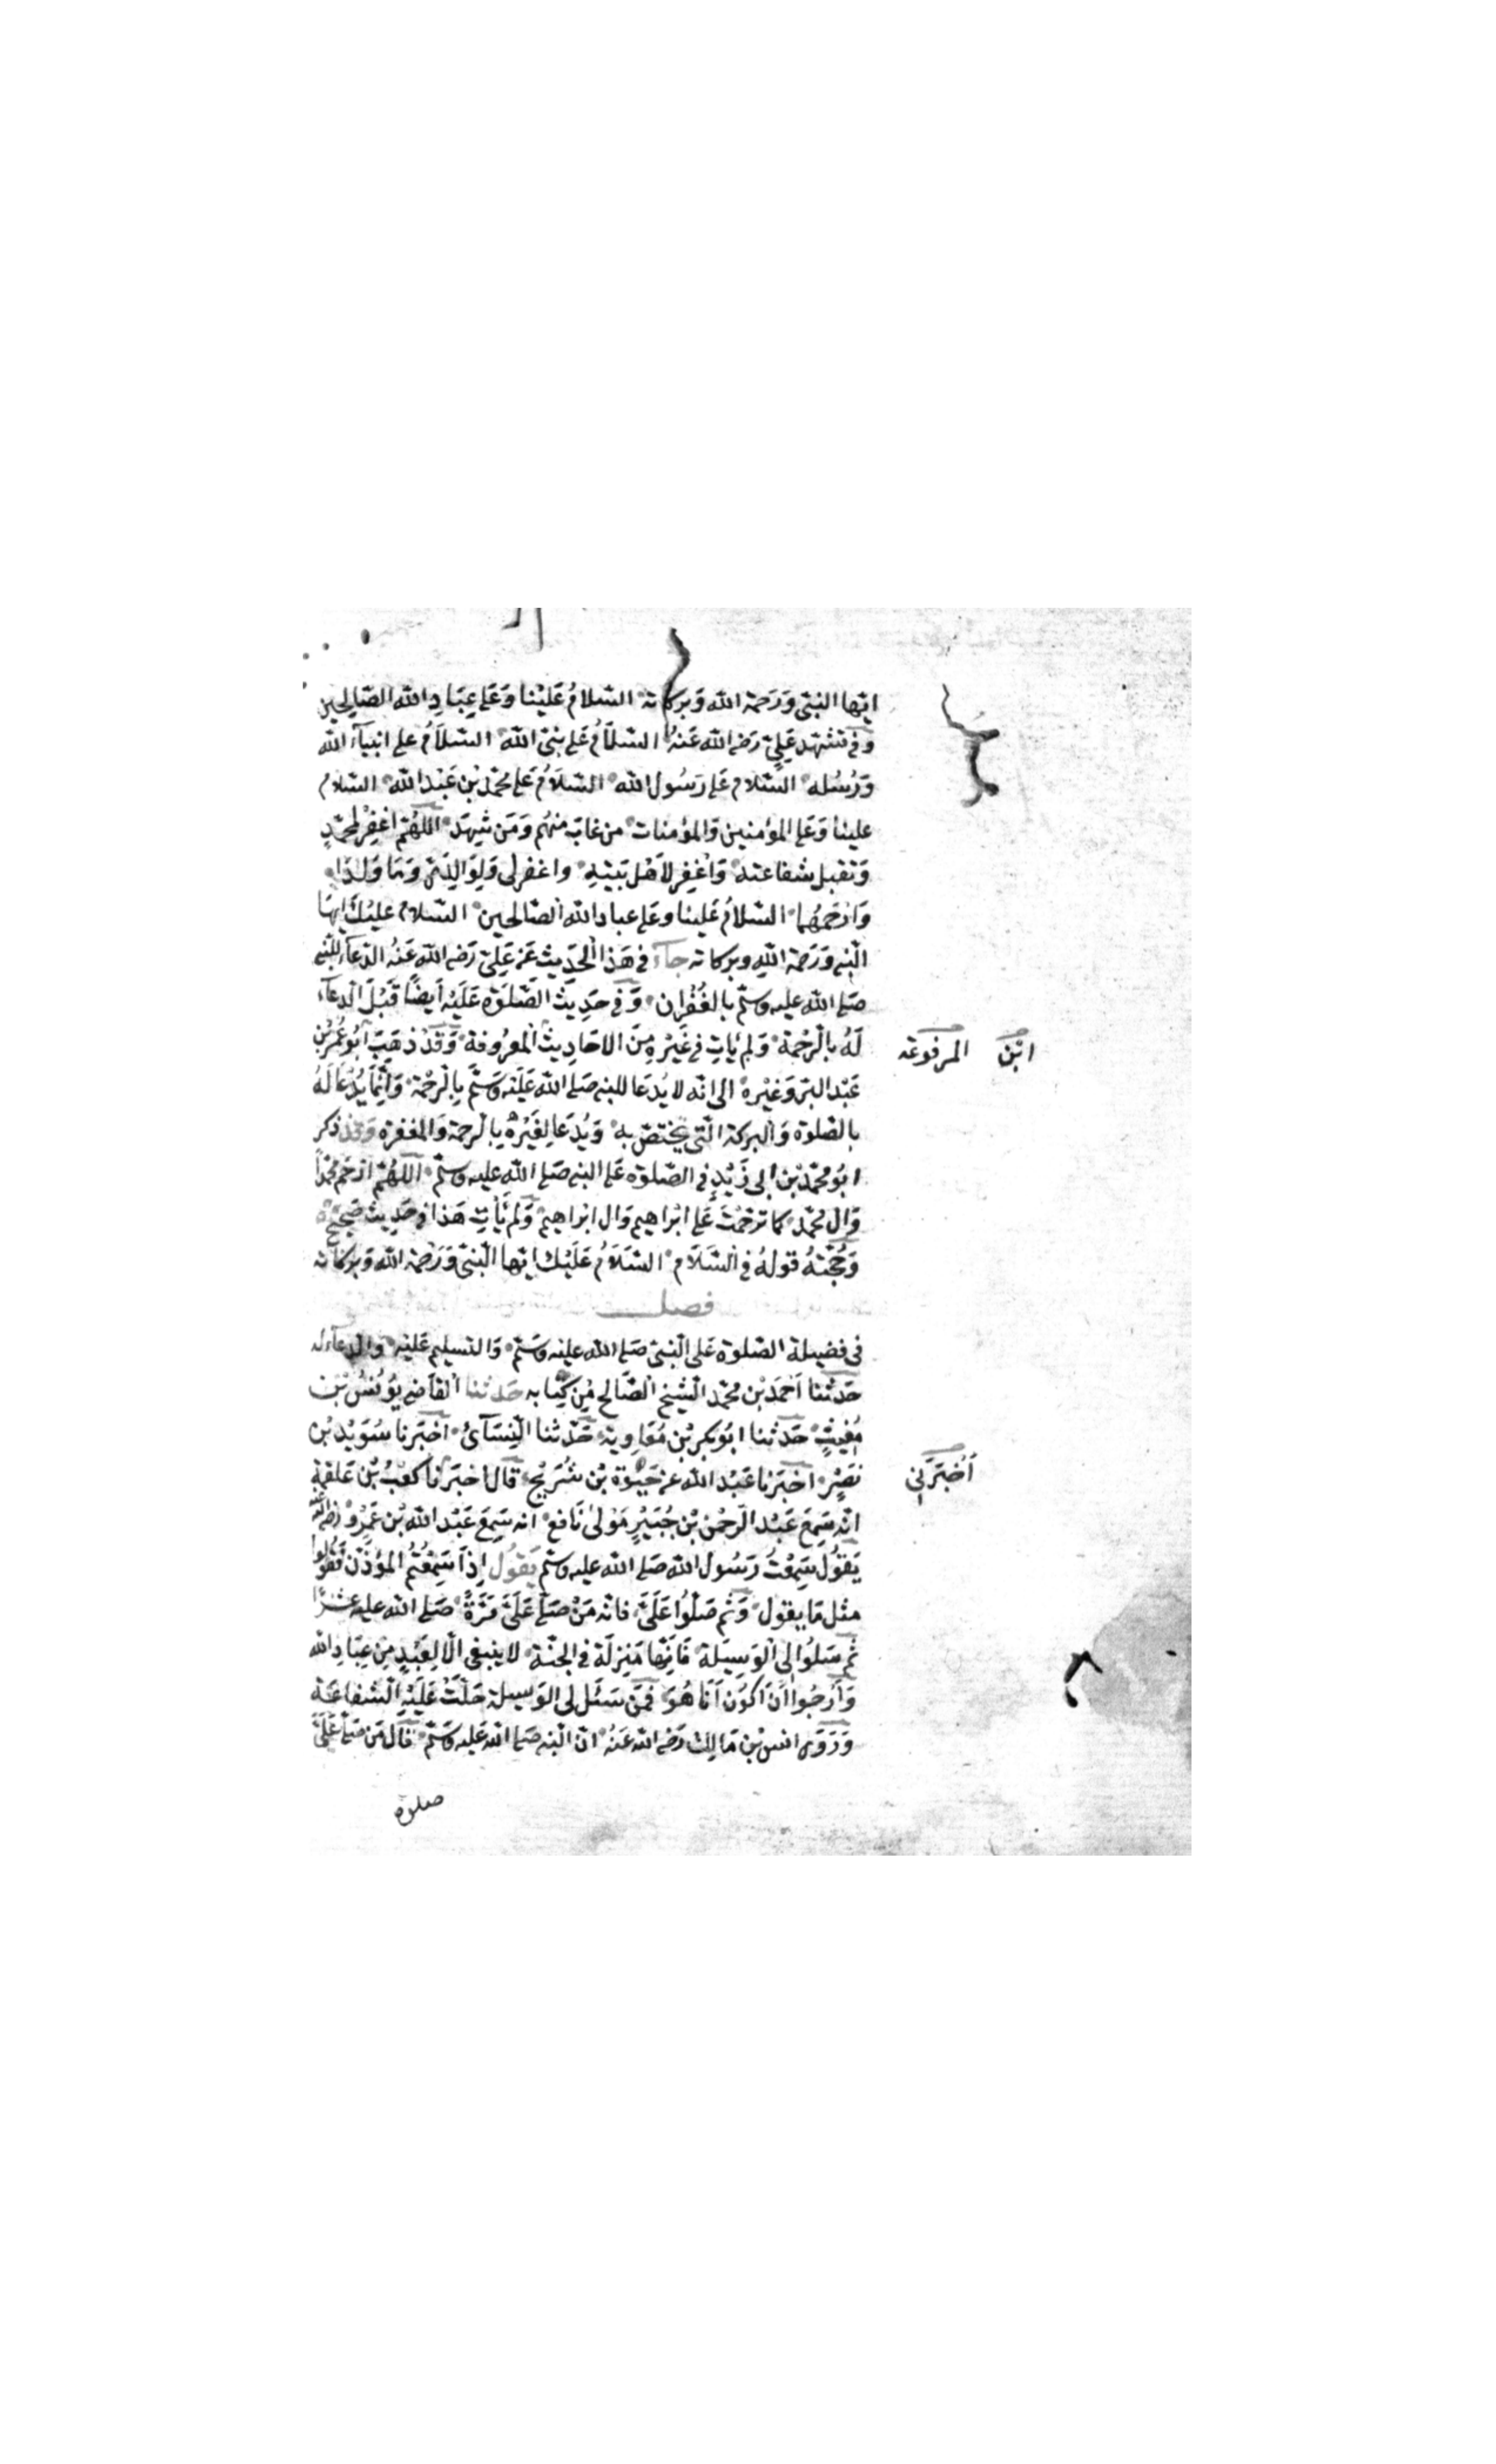 ايّها النبىّ وَرَحمة الله وَبركاته السّلامُ عَليْنا وَعَلى عِبَادِ الله الصّالِحين
وَفى تشهّد عَلِىّ رَضى الله عَنهُ السّلاَمُ عَلى نبىّ الله السّلاَمُ على انبيآء الله
وَرُسُله السَّلام عَلى رَسُول الله السّلاَمُ عَلى محمّد بْن عَبْد الله السّلام
علينا وَعَلى المؤمنين وَالمؤمنات من غابَ منهُم وَمَن شهِدَ اللهُمّ اغفِرْ لمحمّدٍ
وَتقبل شفاعته وَاغفِر لاَهْل بَيتِهِ واغفر لى وَلِوَالِدَىّ وَمَا وَلدَا
وَارْحَمْهُما السّلامُ عَلينا وعَلى عباد الله الصّالحين السّلام عليْك ايّهَا
النبى وَرَحمة اللهِ وبركاته جآءَ فى هَذا الحَدِيث عَن عَلِىّ رَضى الله عَنهُ الدّعآء للنبى
صَلى الله عليه وسلّم بالغُفْران وَفى حَدِيث الصَّلوٰة عَلَيْه اَيضًا قَبْلَ الدعآء
لَهُ بالرّحْمة وَلم يَاتِ فى غَيْرهِ مِنَ الاحَادِيث المعرُوفة وَقَدْ ذهَبَ ابُو عُمَرَ بْن
ابْن المرفوعَه
عَبْد البرّ وَغيْره الى انّه لا يُدعَا للنبى صَلى الله عَليْه وَسَلّم بِالرّحْمة وَانّمَا يُدْعَا لَهُ
بالصّلوٰة وَالبركة الّتى يختصّ به وَيُدعَا لِغَيْرهُ بِالرحمة وَالمغفرة وَقد ذكر
ابُو محمّد بْن اَبى زَيْدٍ فى الصّلوٰة عَلى النبى صَلى الله عليه وسلّم اللهُمّ ارْحَم محمّداً
وَال محمّد كما ترحّمْتَ عَلى ابْراهيم وَال ابْراهيم وَلم يَاْتِ هَذا فى حَدِيث صَحِيْح
وَحُجّتهُ قولهُ فى السَّلَام السّلاَمُ عَلَيْك ايّها النّبىّ وَرَحْمة الله وَبركاته
فصل
فى فضيلة الصّلوة عَلى النّبىّ صَلى الله عليْه وسَلّم وَالتسليم عَليْه والدعآء له
حَدّثنا اَحْمَدُ بْن محمّد الشّيخ الصَّالح مِن كِتابه حَدثنا القاضى يُونُسُ بْن
مُغِيثٍ حَدثنا ابُو بَكر بْن مُعَاوِية حَدّثنا النِسَآئ اخبَرنا سُوَيْد بْن
نَصْرٍ اخبَرَنا عَبْدُ الله عن حَيْوَة بْن شُرَيْحٍ قال اخبَرَنا كَعْبُ بْن عَلقمةَ
اَخْبَرَنِى
انّه سَمِعَ عَبْدَ الرّحْمٰن بْن جُبَيْرٍ مَوْلى نَافع انه سَمِعَ عَبْدَ الله بْن عَمْرٍو رضى الله عنه
يَقولُ سَمِعْتُ رَسُول الله صَلى الله عليه وسلّم يَقوُل اِذا سَمِعْتُمُ المؤذّن فقولوا
مثل مَا يقول وَثم صَلّوُا عَلَىَّ فانّه مَنْ صَلى عَلَىَّ مَرَّةً صَلى الله عليه عَشرًا
ثم سَلوُا لى الْوَسِيَلة فَانّها مَنزِلَة فى الجنّة لا ينبغى الّا لِعَبْدٍ مِن عِبَادِ الله
وَاَرْجُوا اَنْ اَكوُن اَنَا هُوَ فَمَنْ سَئل لى الوَسِيلة حَلّتْ عَلَيْهِ الشفاعَة
وَرَوَى انس بْن مَالِك رَضى الله عَنهُ انّ النّبى صَلى الله عَليه وَسَلّم قال مَن صَلى عَلَىَّ
صلوة